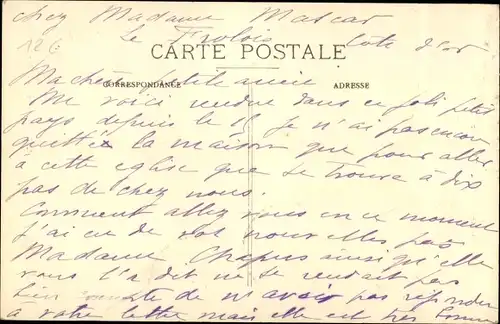 chez Madame Mascar
126
Le Frolois Cote d'or
CARTE POSTALE
Ma chère petite amie
CORRESPONDANCE ADRESSE
Me voici rendue dans ce joli petit
pays depuis le 15 je n'ai pas encore
quitté la maison que pour aller
à cette eglise que se trouve à dix
pas de chez nous.
Comment allez vous en ce moment
j'ai eu de vos nouvelles par
Madame Chapus ainsi qu'elle
vous l'a dit ne se rendait pas
bien compte de n'avoir pas répondu
a votre lettre mais elle est très bonne